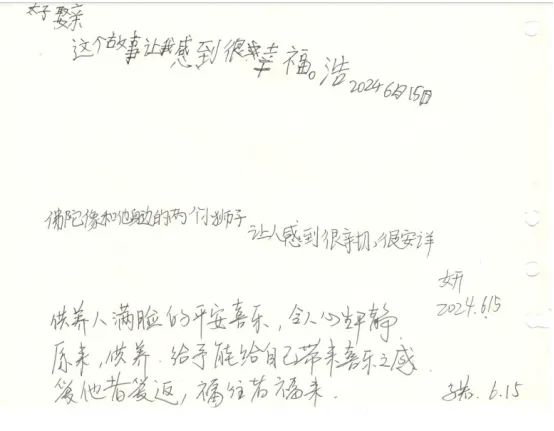 太子娶亲
这个故事让我感到很幸福。浩
2024 6月15日
佛陀像和他身边的两个小狮子
让人感到很亲切,很安详
妍
2024.6.15
供养人满脸的平安喜乐,令人心生平静.
原来,供养.给予能给自己带来喜乐之感.
爱他者爱返,福往者福来.
6.15